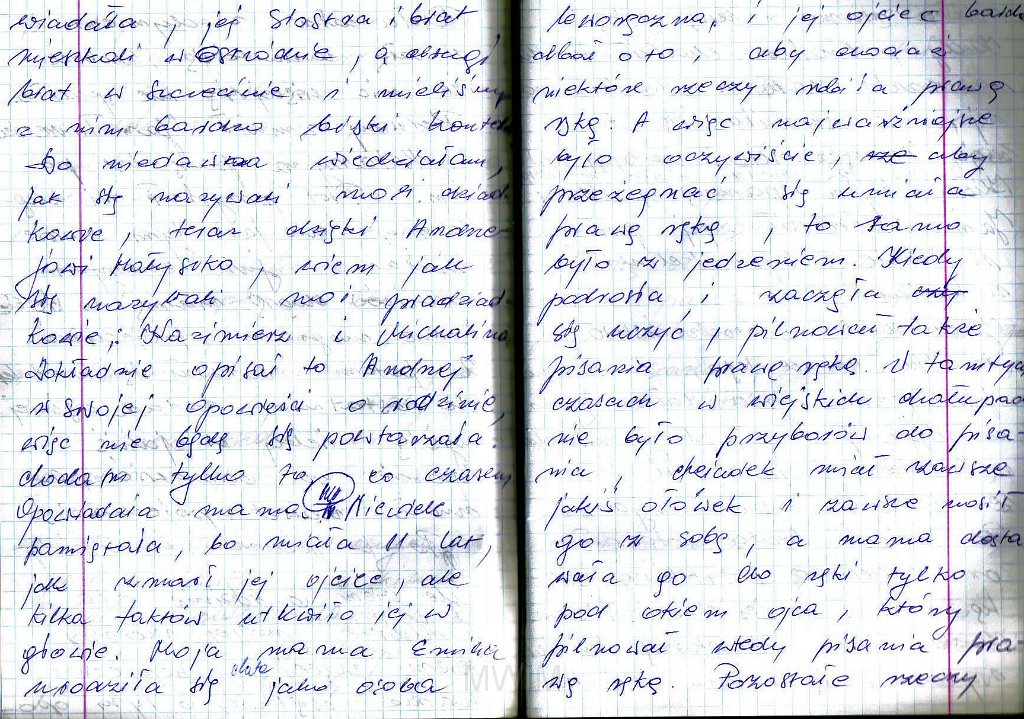 wiadała, jej siostra i brat
mieszkali w Ostródzie, a drugi
brat w Szczecinie i mieliśmy
z nim bardzo bliski kontak
Do niedawna wiedziałam,
jak się nazywali moi dziad
kowie, teraz dzięki Andrze-
jowi Małyszko, wiem jak
się nazywali moi pradziad-
kowie,: Kazimierz i Michalina
Dokładnie opisał to Andrzej
w swojej opowieści o rodzinie,
więc nie będę się powtarzała.
dodam tylko to co czasem
Opowiadała mama. Niewiele
pamiętała, bo miała 11 lat,
jak zmarł jej ojciec, ale
kilka faktów utkwiło jej w
głowie. Moja mama Emilia
urodziła się jako osoba
leworęczna, i jej ojciec bardz
dbał o to, aby chociaż
niektóre rzeczy robiła prawą
ręką. A więc najważniejsze
było oczywiście, że aby
przeżegnać się umiała
prawą ręką, to samo
było z jedzeniem. Kiedy
podrosła i zaczęła czy
się uczyć, pilnował także
pisania prawą ręką. W tamtyc
czasach w wiejskich chałupac
nie było przyborów do pisa-
nia, dziadek miał zawsze
jakiś ołówek i zawsze nosił
go z sobą, a mama dosta
wała go do ręki tylko
pod okiem ojca, który
pilnował wtedy pisania pra-
wą ręką. Pozostałe rzeczy